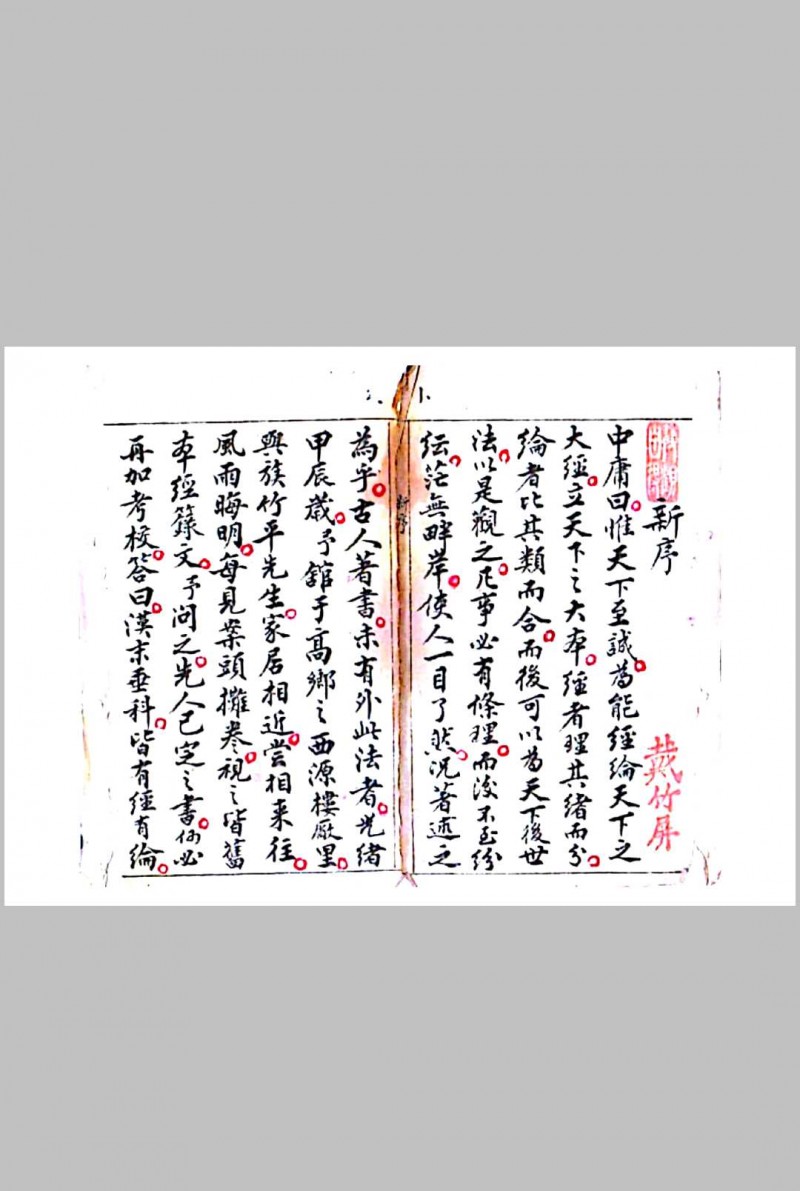 新序
戴竹屏
中庸曰惟天下至誠為能經綸天下之
大經立天下之大本經者理其緒而分
綸者比其類而合而後可以為天下後世
法以是觀之凡事必有條理而後不至紛
紜茫無畔岸使人一目了然況著述之
新序
為乎古人著書未有外此法者光緒
甲辰歲予館于高鄉之西源樓厰里
與族竹平先生家居相近嘗相来往
風雨晦明每見案頭攤卷視之皆舊
本經籙文予问之先人已定之書何必
再加考校答曰漢末垂科皆有經有綸